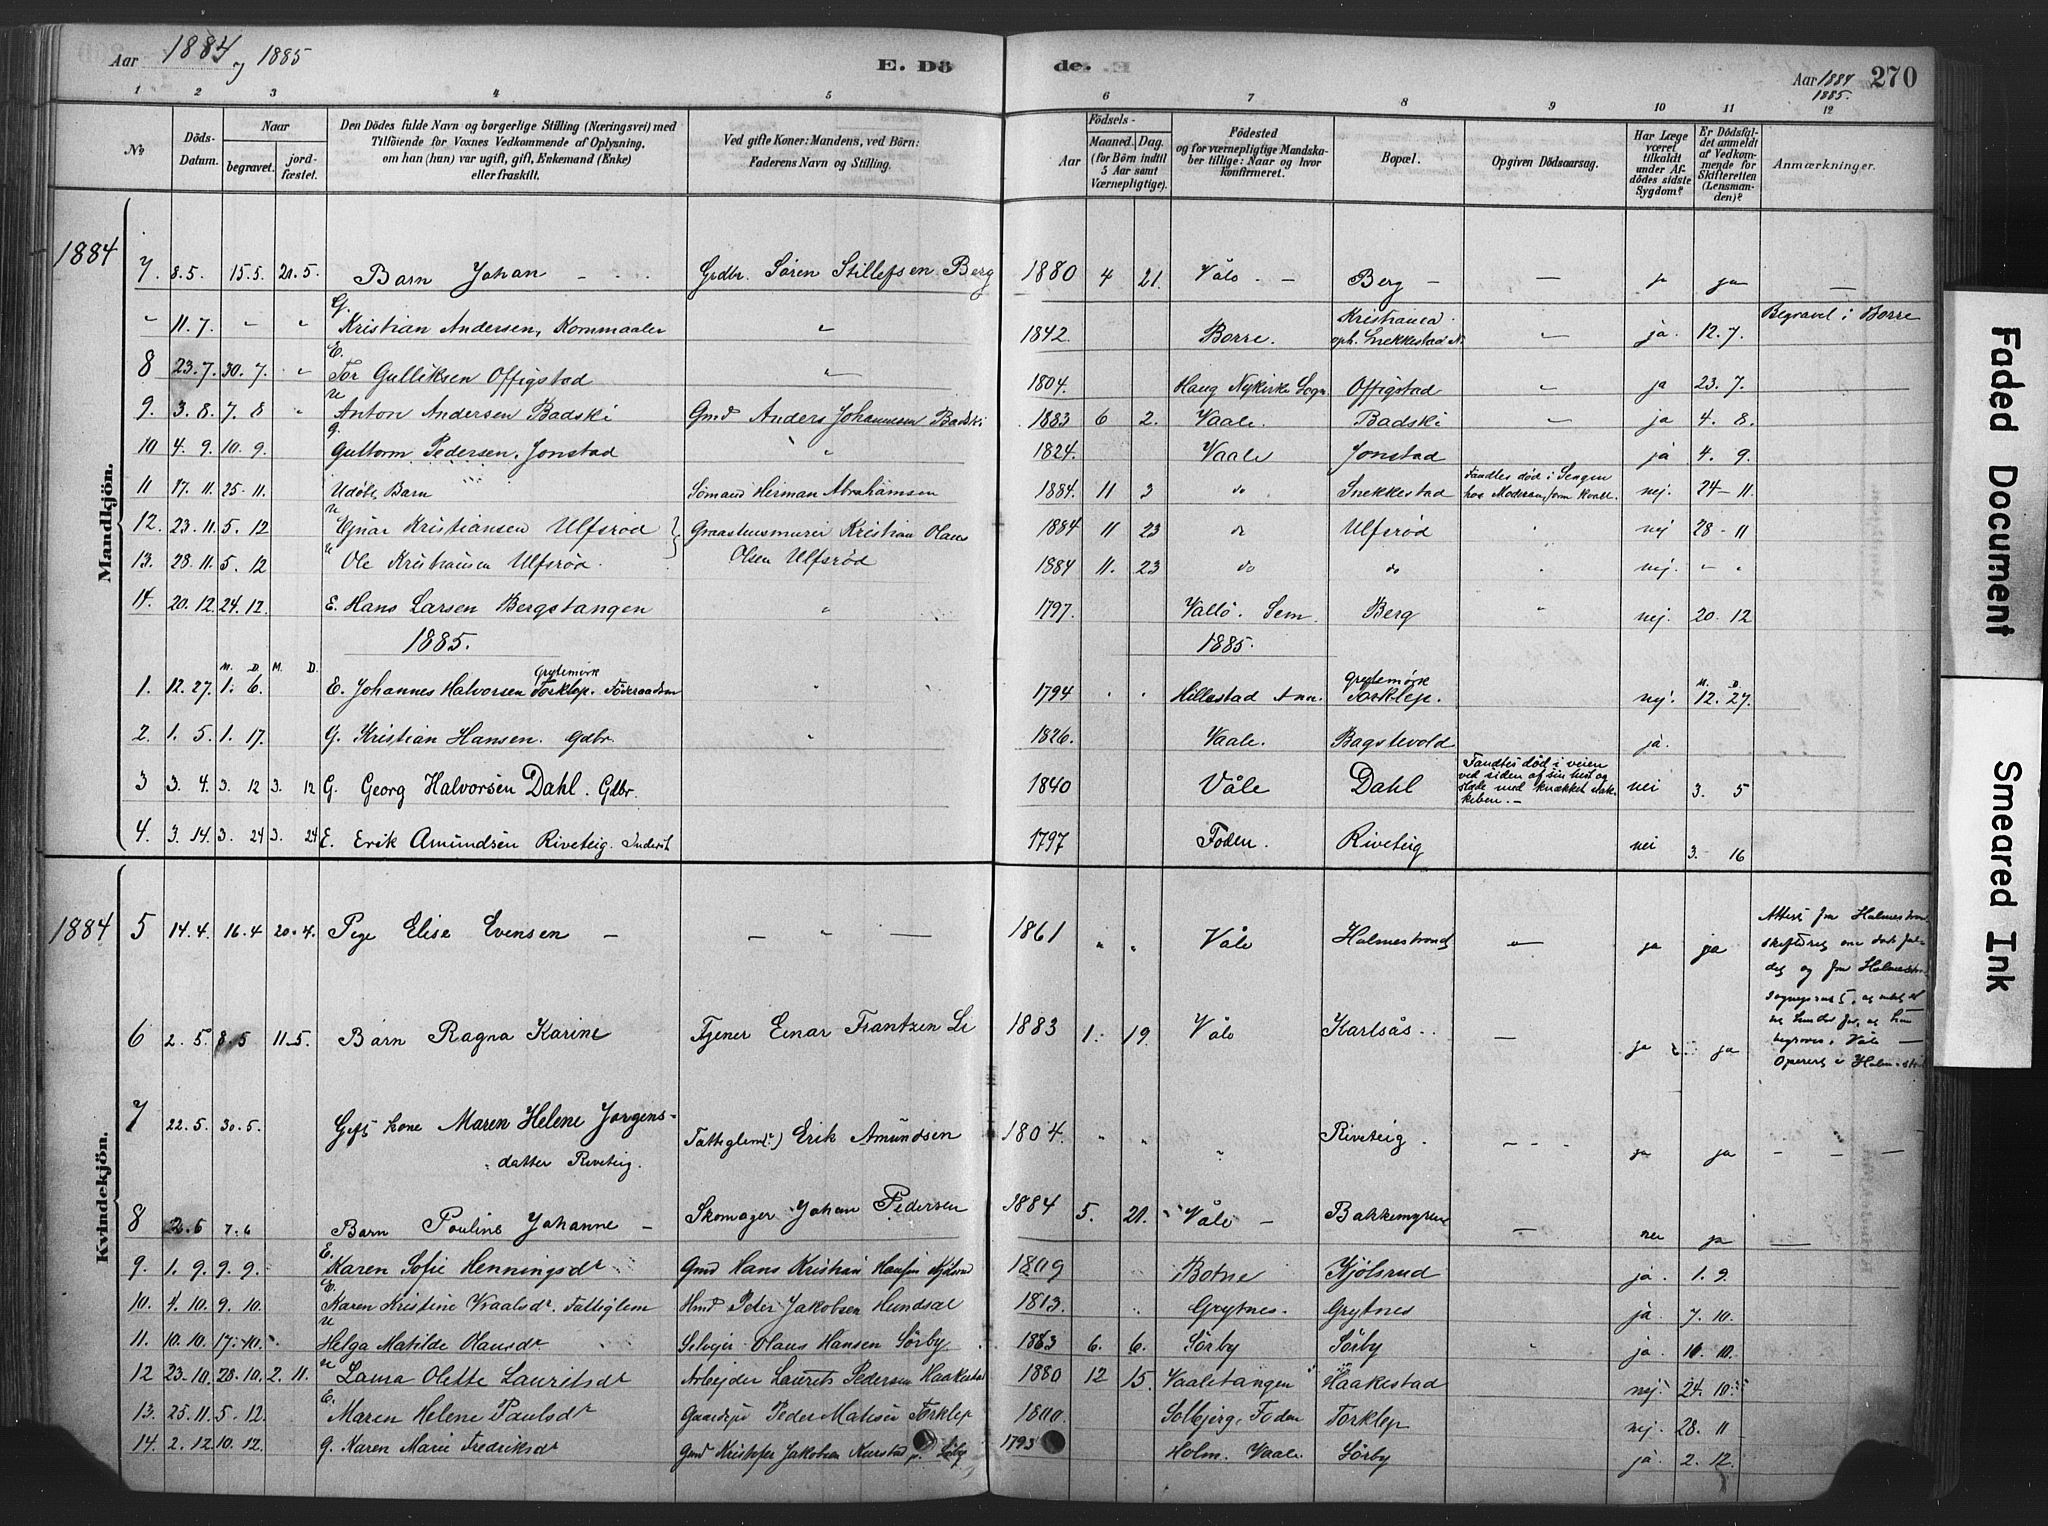 Aar 1884 og 1885
E. Dö
de.
Aar 1884
1885.
270
1 2 3 4 5 6 7 8 9 10 11 12
No
Döds-Datum.
Naar
begravet.
jord-fæstet.
Den Dödes fulde Navn og borgerlige Stilling (Næringsvei) med
Tilföiende for Voxnes Vedkommende af Oplysning,
om han (hun) var ugift, gift, Enkemand (Enke)
eller fraskilt.
Ved gifte Koner: Mandens, ved Börn:
Faderens Navn og Stilling.
Födsels-
Aar
Maaned. Dag.
(for Börn indtil
5 Aar samt
Værnepligtige).
Födested
og for værnepligtige Mandska-
ber tillige: Naar og hvor
konfirmeret.
Bopæl.
Opgiven Dödsaarsag.
Har Læge
været
tilkaldt
under Af-
dödes sidste
Sygdom?
Er Dödsfal-
det anmeldt
af Vedkom-
mende for
Skifteretten
(Lensman-
den)?
Anmærkninger.
Mandkjön.
1884
7 8.5. 15.5. 20.5. Barn Johan - Grdbr. Sören Stillefsen Berg 1880 4 21. Våle - Berg - — ja ja —
" 11.7. " " G. Kristian Andersen, Kornmaaler " 1842. Borre. Kristiania oph. Snekkestad N. " ja. 12.7. Begravet i Borre
8 23.7. 30.7. " E. Tor Gulliksen Offigstad " 1804. Haug Nykirke Sogn Offigstad " ja 23.7.
9. 3.8. 7.8 " u Anton Andersen Badski Gmd Anders Johannesen Badski 1883 6 2. Vaale. Badski " ja 4.8.
10 4.9. 10.9. g. Guttorm Pedersen, Jonstad " 1824. Vaale Jonstad ja 4.9.
11 17.11. 25.11. Udöbt Barn Sömand Herman Abrahamsen 1884. 11 3 do Snekkestad Fandtes død i Sengen hos Moderen, nej. 24-11.
12. 23.11. 5.12 u Ejnar Kristiansen Ulfsrød } Graastensmurer Kristian Olaus 1884 11 23 do Ulfsrød " nej 28-11
13. 28.11. 5.12 u Ole Kristiansen Ulfsrød. Olsen Ulfsrød 1884 11. 23 do do nej. " "
14. 20.12. 24.12. E. Hans Larsen Bergstangen " 1797. Vallö. Sem. Berg " nej. 20.12
1885. 1885.
M. D. M. D.
1. 12.27. 1.6. E. Johannes Halvorsen Grytemørk Torklep. " 1794 " " Hillestad Grytemørk Torklep. nej. M. D. 12.27.
2. 1.5. 1.17. G. Kristian Hansen. Gdbr. " 1826. Vaale. Bagstevold ja.
3 3.4. 3.12 3.12 G. Georg Halvorsen Dahl. Gdbr. 1840 Våle Dahl Fandtes død i veien ved siden af sin hest og slæde med knækket nak- keben.- nei 3.5
4. 3.14. 3.24 3.24 E. Erik Amundsen Riveteig. Inderst 1797 Foden. Riveteig nei 3.16
Kvindekjön.
1884
5 14.4. 16.4 20.4. Pige Elise Evensen - — " — 1861 " " Våle Halmestrand " ja ja Attest fra Halmestrand skifteret om døds- og fra Halmestr. begraves i Våle — Opereret i Halmestrand
6 2.5. 8.5 11.5. Barn Ragna Karine Tjener Einar Frantzen Li 1883 1. 19. Våle Karlsås. — ja ja
7 22.5. 30.5. Gift kone Maren Helene Jørgens- datter Riveteig. Fattiglem (:) Erik Amundsen 1804. " " " Riveteig. - - ja ja - - -
8 26.5 7.6 Barn Pauline Johanne - Skomager Johan Pedersen 1884 5. 21. Våle - Bakkemyrene — nei ja —
9. 1.9. 9.9. E. Karen Sofie Henningsdr Gmd Hans Kristian Hansen Kjølsrud 1809 Botne Kjölsrud ja. 1.9.
10. 4.10. 9.10. E. Karen Kristine Vraalsdr. Fattiglem Hmd Peder Jakobsen Hundsal 1813. " Grytnes. Grytnes ja. 7.10.
11. 10.10. 17.10. u Helga Matilde Olausdr Selvejer Olaus Hansen Sörby 1883 6. 6. Sörby Sörby " ja. 10.10.
12 23.10. 28.10. 2.11. u Laura Olette Lauritsdr Arbejder Laurits Pedersen Haakestad 1880 12 15. Vaaletangen Haakestad nej. 24.10.
13. 25.11. 5.12. E. Maren Helene Paulsdr Gaardejer Peder Matisen Torklep 1800. Solbjerg, Foden Torklep nej. 28.11
14. 2.12. 10.12. g. Karen Marie Fredriksdr Gmd Kristofer Jakobsen Kurstad p. Sörby 1793 Holm. Vaale. Sörby ja. 2.12.
Faded Document
Smeared Ink